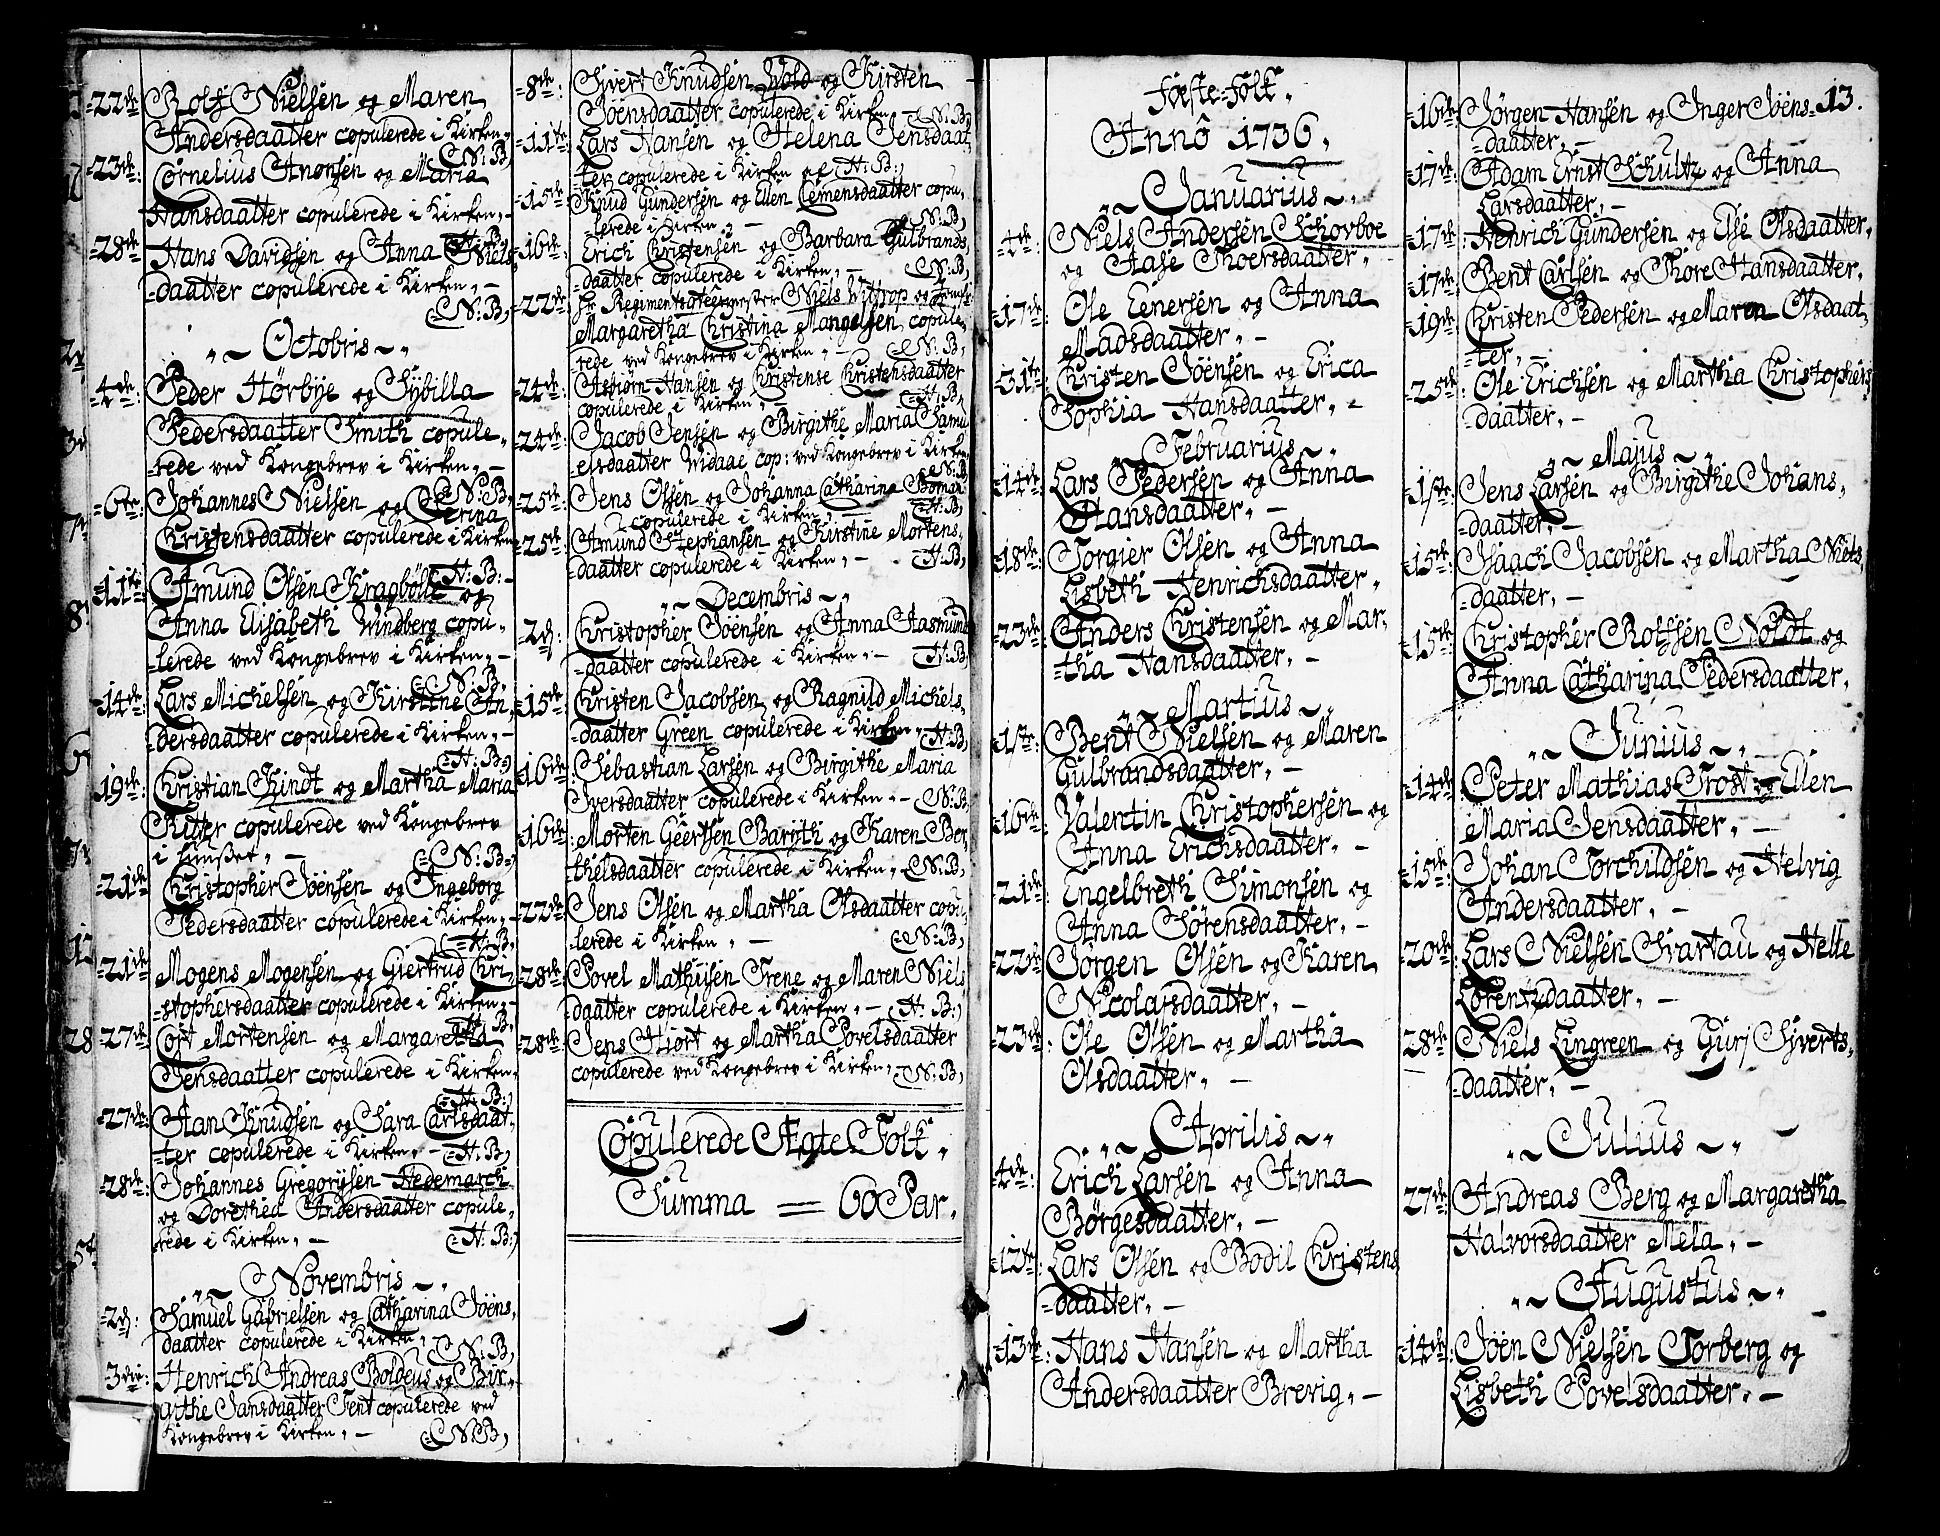 =22de Rolf Nielsen og Maren
Andersdaatter copulerede i Kirken,-
(N:B)
=23de: Cornelius Anonsen og Maria
Hansdaatter copulerede i Kirken,-
(H:B)
=28de: Hans Davidsen og Anna Niels
=daatter copulerede i Kirken,-
(N:B)
Octobris
=4de: Peder Hörbye og Sybilla
Pedersdaatter Smith copule,
=rede ved Kongebrev i Kirken,-
(N:B)
=6te: Johannes Nielsen og
Kristensdaatter copulerede i Kirken
(H:B)
=11te: Amund Olsen Kragböll og
Anna Elisabeth Windberg copu,
=lerede ved Kongebrev i Kirken,-
(N:B)
=14de: Lars Michelsen og Kirstine An,
=dersdaatter copulerede i Kirken,-
(H:B)
=19de: Christian Kindt og Martha Maria
Ritter copulerede ved Kongebrev
i Huuset,-
(N:B)
=21de: Christopher Joensen og Ingeborg
Pedersdaatter copulerede i Kirken,-
(H:B)
=21de: Mogens Mogensen og Giertrud Cri,
=stophersdaatter copulerede i Kirken,-
(H:B)
=27de: Cort Mortensen og Margaretha
Jensdaatter copulerede i Kirken,
(H:B)
=27de: Stan Knudsen og Sara Carlsdaat,
=ter copulerede i Kirken,- (H:B)
=28de: Johannes Gregorijsen Hedemarch
og Dorethea Andersdaatter copule,
=rede i Kirken,- (H:B)
Novembris
=2d: Samuel Gabrielsen og Catharina Joens,
daatter copulerede i Kirken, (N:B)
=3die: Henrich Andreas Boldeus og Bir,
githe Jansdaatter Tent copulerede ved
Kongebrev i Kirken,- (N:B)
=8de: Sjvert Knudsen Wold og Kirsten
Joensdaatter copulerede i Kirken
(N:B)
=11te: Lars Hansen og Helena Jensdaat,
ter copulerede i Kirken af H:B:
=15de: Knud Gundersen og Ellen Clemensdaatter copu,
=lerede i Kirken,- (N:B)
=16de: Erich Christensen og Barbara Gulbrands,
daatter copulerede i Kirken,- (N:B)
=22de: Hr. Niels Wittrop og
Margaretha Christina Mangelsen, copule,
=rede ved Kongebrev i Kirken,- (N:B)
=24de: Asbiörn Hansen og Christense Christensdaatter
copulerede i Kirken,- (H:B)
=24de: Jacob Jensen og Birgithe Maria Samu
elsdaatter Widaae cop: ved Kongebrev i Kirken
(N:B)
=25de: Jens Olsen og Johanna Catharina
copulerede i Kirken,- (H:B)
=25de: Amund Stephansen og Kirstine Mortens,
=daatter copulerede i Kirken,- (H:B)
Decembris
=2d: Christopher Joensen og Anna Aasmund
=daatter copulerede i Kirken,- (H:B)
=15de: Christen Jacobsen og Ragnild Michels,
=daatter Green copulerede i Kirken,-
(H:B)
=16de: Sebastian Larsen og Birgithe Maria
Iversdaatter copulerede i Kirken,- (N:B)
=16de: Morten Geertsen Barijth og Karen Ber
thelsdaatter copulerede i Kirken,- (N:B)
=22de: Jens Olsen og Martha Olsdaatter copu,
=lerede i Kirken,- (N:B)
=28de: Povel Mathiisen Trene og Maren Niels
daatter copulerede i Kirken,- (H:B)
=28de: Jens Hjort og Martha Povelsdaatter
copulerede ved Kongebrev i Kirken,- (N:B)
Copulerede Ægte-Folk,
Summa = 60 Par,
Fœste-Folk,
Annô 1736,
Januarius
=4de: Niels Andersen Schovboe
og Aase Thoersdaatter,
=17de: Ole Eenersen og Anna
Madsdaatter,-
=31te: Christen Joensen og Erica
Sophia Hansdaatter,-
Februarius
=14de: Lars Pedersen og Anna
Hansdaatter,-
=18de: Torgier Olsen og Anna
Lisbeth Henrichsdaatter,
=23de: Anders Christensen og Mar,
tha Hansdaatter,-
Martius
=1ste: Bent Nielsen og Maren
Gulbrandsdaatter,-
=16de: Valentin Christophersen og
Anna Erichsdaatter,-
=21de: Engelbreth Simonsen og
Anna Sörensdaatter,-
=22de: Jörgen Olsen og Karen
Nicolaisdaatter,-
=23de: Ole Olsen og Martha
Olsdaatter,-
Aprilis
=4de: Erich Larsen og Anna
Börgesdaatter,-
=12te: Lars Olsen og Bodil Christens
=daatter,-
=13de: Hans Hansen og Martha
Andersdaatter Brevig,-
13.
=16de: Jörgen Hansen og Inger Joens=
=daatter,-
=17de: Adam Ernst Schultz og Anna
Larsdaatter,-
=17de: Henrich Gundersen og Else Olsdaatter,
=17de: Bent Carlsen og Thore Hansdaatter,
=19de: Christen Pedersen og Maren Olsdaat,
=ter,-
=25de: Ole Erichsen og Martha Christophers
daatter,-
Majus
=1ste: Jens Larsen og Birgithe Johans,
=daatter,-
=15de: Isaach Jacobsen og Martha Niels,
=daatter,-
=15de: Christopher Rolfsen Noldt og
Anna Catharina Pedersdaatter,
Junius
=14de: Peter Mathias Trost og Ellen
Maria Jensdaatter,-
=15de: Johan Torchildsen og Helvig
Andersdaatter,-
=20de: Lars Nielsen Svartau og Helle
Lorentzdaatter,-
=28de: Niels Lingreen og Gurj Sjverts,
=daatter,-
Julius
=27de: Andreas Berg og Margaretha
Halvorsdaatter Mela,-
Augustus
=14de: Joen Nielsen Torberg og
Lisbeth Povelsdaatter,-